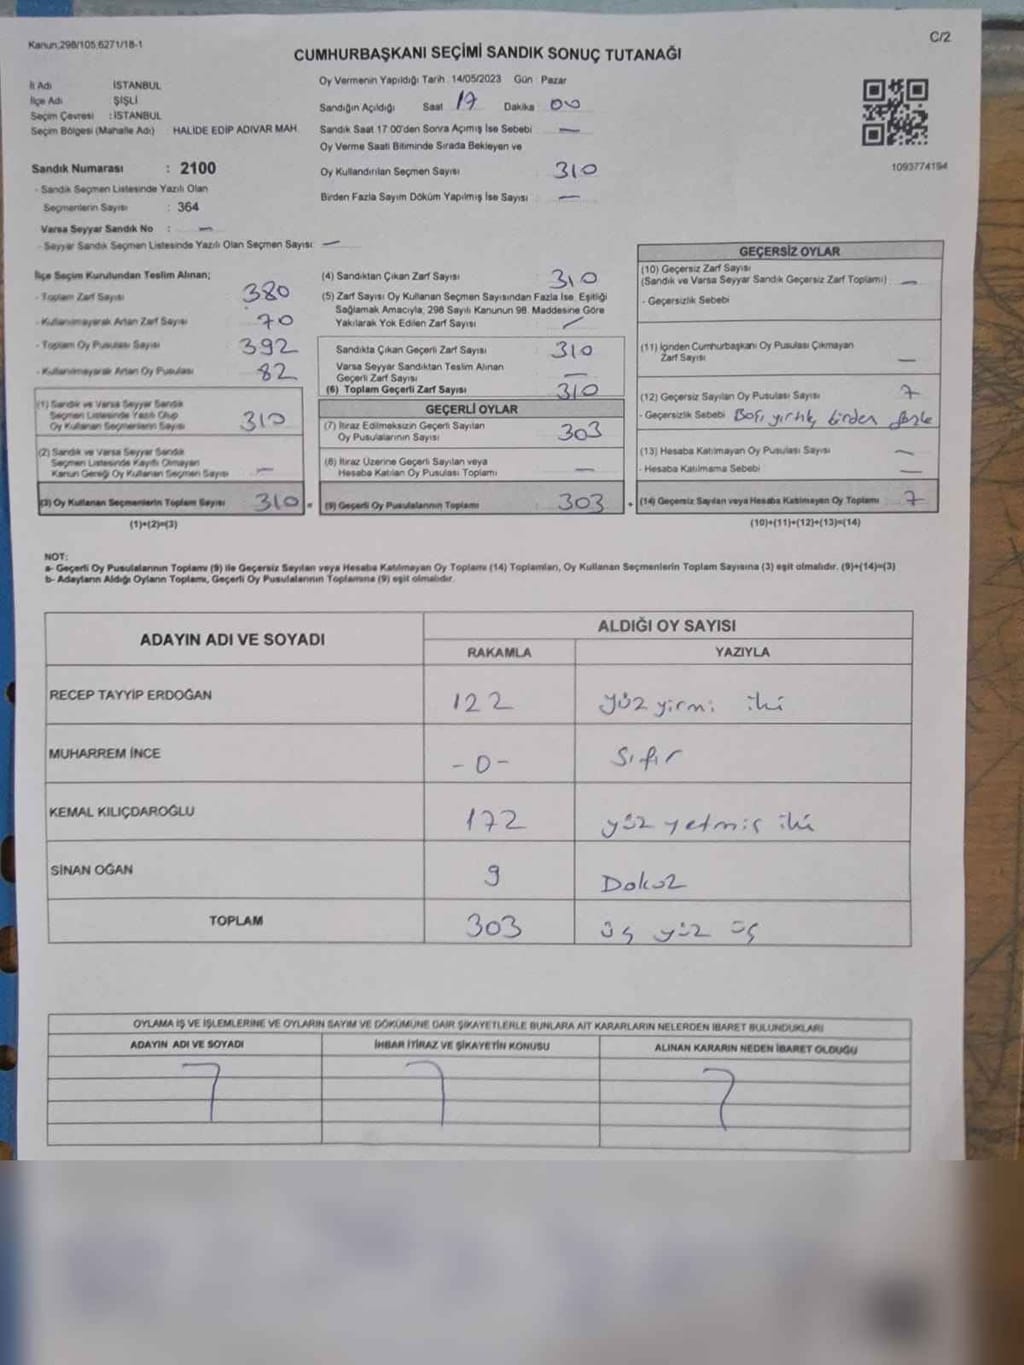 Kanun;298/105,6271/18-1
C/2
CUMHURBAŞKANI SEÇİMİ SANDIK SONUÇ TUTANAĞI
İl Adı İSTANBUL
İlçe Adı ŞİŞLİ
Seçim Çevresi : İSTANBUL
Seçim Bölgesi (Mahalle Adı) HALİDE EDİP ADIVAR MAH.
Sandık Numarası : 2100
- Sandık Seçmen Listesinde Yazılı Olan
Seçmenlerin Sayısı : 364
Varsa Seyyar Sandık No : —
- Seyyar Sandık Seçmen Listesinde Yazılı Olan Seçmen Sayısı: —
Oy Vermenin Yapıldığı Tarih 14/05/2023 Gün Pazar
Sandığın Açıldığı Saat 17 Dakika 00
Sandık Saat 17:00'den Sonra Açımış İse Sebebi —
Oy Verme Saati Bitiminde Sırada Bekleyen ve
Oy Kullandırılan Seçmen Sayısı 310
Birden Fazla Sayım Döküm Yapılmış İse Sayısı —
1093774194
İlçe Seçim Kurulundan Teslim Alınan;
- Toplam Zarf Sayısı 380
- Kullanılmayarak Artan Zarf Sayısı 70
- Toplam Oy Pusulası Sayısı 392
- Kullanılmayarak Artan Oy Pusulası 82
(1) Sandık ve Varsa Seyyar Sandık
Seçmen Listesinde Yazılı Olup
Oy Kullanan Seçmenlerin Sayısı 310
(2) Sandık ve Varsa Seyyar Sandık
Seçmen Listesinde Kayıtlı Olmayan
Kanun Gereği Oy Kullanan Seçmen Sayısı —
(3) Oy Kullanan Seçmenlerin Toplam Sayısı 310 =
(1)+(2)=(3)
(4) Sandıktan Çıkan Zarf Sayısı 310
(5) Zarf Sayısı Oy Kullanan Seçmen Sayısından Fazla İse, Eşitliği
Sağlamak Amacıyla, 298 Sayılı Kanunun 98. Maddesine Göre
Yakılarak Yok Edilen Zarf Sayısı /
Sandıkta Çıkan Geçerli Zarf Sayısı 310
Varsa Seyyar Sandıktan Teslim Alınan
Geçerli Zarf Sayısı —
(6) Toplam Geçerli Zarf Sayısı 310
GEÇERLİ OYLAR
(7) İtiraz Edilmeksizin Geçerli Sayılan
Oy Pusulalarının Sayısı 303
(8) İtiraz Üzerine Geçerli Sayılan veya
Hesaba Katılan Oy Pusulası Toplamı —
(9) Geçerli Oy Pusulalarının Toplamı 303 +
GEÇERSİZ OYLAR
(10) Geçersiz Zarf Sayısı
(Sandık ve Varsa Seyyar Sandık Geçersiz Zarf Toplamı) : —
- Geçersizlik Sebebi
(11) İçinden Cumhurbaşkanı Oy Pusulası Çıkmayan
Zarf Sayısı —
(12) Geçersiz Sayılan Oy Pusulası Sayısı 7
- Geçersizlik Sebebi Boş, yırtık, birden fazla
(13) Hesaba Katılmayan Oy Pusulası Sayısı —
- Hesaba Katılmama Sebebi —
(14) Geçersiz Sayılan veya Hesaba Katılmayan Oy Toplamı 7
(10)+(11)+(12)+(13)=(14)
NOT:
a- Geçerli Oy Pusulalarının Toplamı (9) ile Geçersiz Sayılan veya Hesaba Katılmayan Oy Toplamı (14) Toplamları, Oy Kullanan Seçmenlerin Toplam Sayısına (3) eşit olmalıdır. (9)+(14)=(3)
b- Adayların Aldığı Oyların Toplamı, Geçerli Oy Pusulalarının Toplamına (9) eşit olmalıdır.
ADAYIN ADI VE SOYADI
ALDIĞI OY SAYISI
RAKAMLA YAZIYLA
RECEP TAYYİP ERDOĞAN 122 yüz yirmi iki
MUHARREM İNCE -0- Sıfır
KEMAL KILIÇDAROĞLU 172 yüz yetmiş iki
SİNAN OĞAN 9 Dokuz
TOPLAM 303 üç yüz üç
OYLAMA İŞ VE İŞLEMLERİNE VE OYLARIN SAYIM VE DÖKÜMÜNE DAİR ŞİKAYETLERLE BUNLARA AİT KARARLARIN NELERDEN İBARET BULUNDUKLARI
ADAYIN ADI VE SOYADI İHBAR İTİRAZ VE ŞİKAYETİN KONUSU ALINAN KARARIN NEDEN İBARET OLDUĞU